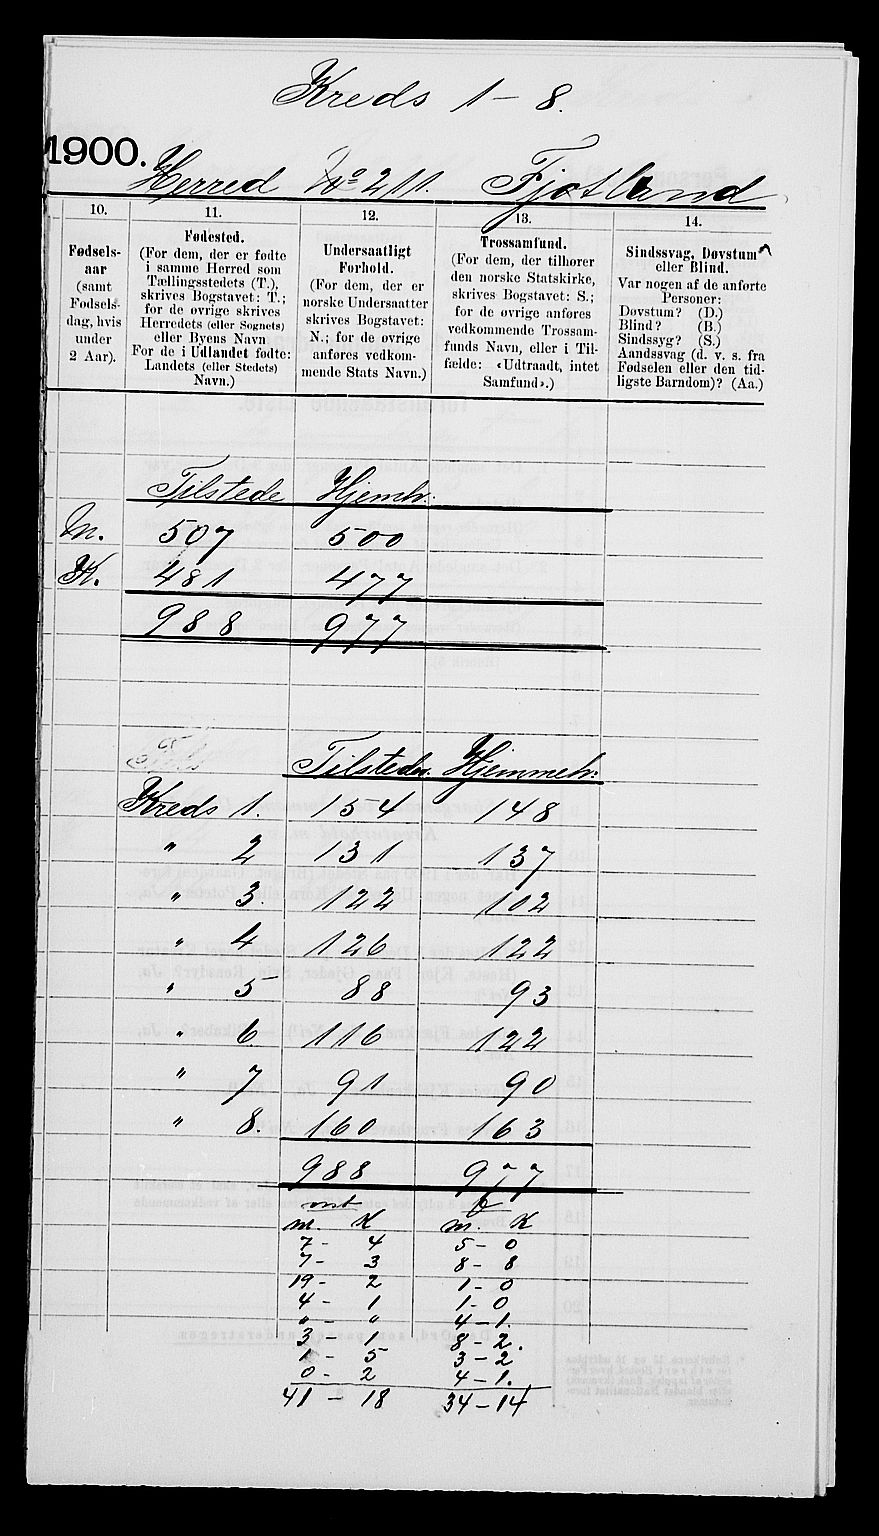 Kreds 1 - 8.
1900.
Herred No 211. Fjotland
10. 11. 12. 13. 14.
Fødsels-
aar
(samt
Fødsels-
dag, hvis
under
2 Aar).
Fødested.
(For dem, der er fødte
i samme Herred som
Tællingsstedets (T.),
skrives Bogstavet: T.;
for de øvrige skrives
Herredets (eller Sognets)
eller Byens Navn
For de i Udlandet fødte:
Landets (eller Stedets)
Navn.)
Undersaatligt
Forhold.
(For dem, der er
norske Undersaatter
skrives Bogstavet:
N.; for de øvrige
anføres vedkom-
mende Stats Navn.)
Trossamfund.
(For dem, der tilhører
den norske Statskirke,
skrives Bogstavet: S.;
for de øvrige anføres
vedkommende Trossam-
funds Navn, eller i Til-
fælde: «Udtraadt, intet
Samfund».)
Sindssvag, Døvstum
eller Blind.
Var nogen af de anførte
Personer:
Døvstum? (D.)
Blind? (B.)
Sindssyg? (S.)
Aandssvag (d. v. s. fra
Fødselen eller den tid-
ligste Barndom)? (Aa.)
Tilstede Hjemh:
M. 507 500
K. 481 477
988 977
Tilstedev. Hjemmeh:
Kreds 1. 154 148
" 2 131 137
" 3. 122 102
" 4 126 122
" 5 88 93
" 6 116 122
" 7 91 90
" 8. 160 163
988 977
mt f
m. K m. K
7 - 4 5 - 0
7 - 3 8 - 8
19 - 2 1 - 0
4 - 1 1 - 0
" - " 4 - 1.
3 - 1 8 - 2.
1 - 5 3 - 2
0 - 2 4 - 1.
41 - 18 34 - 14